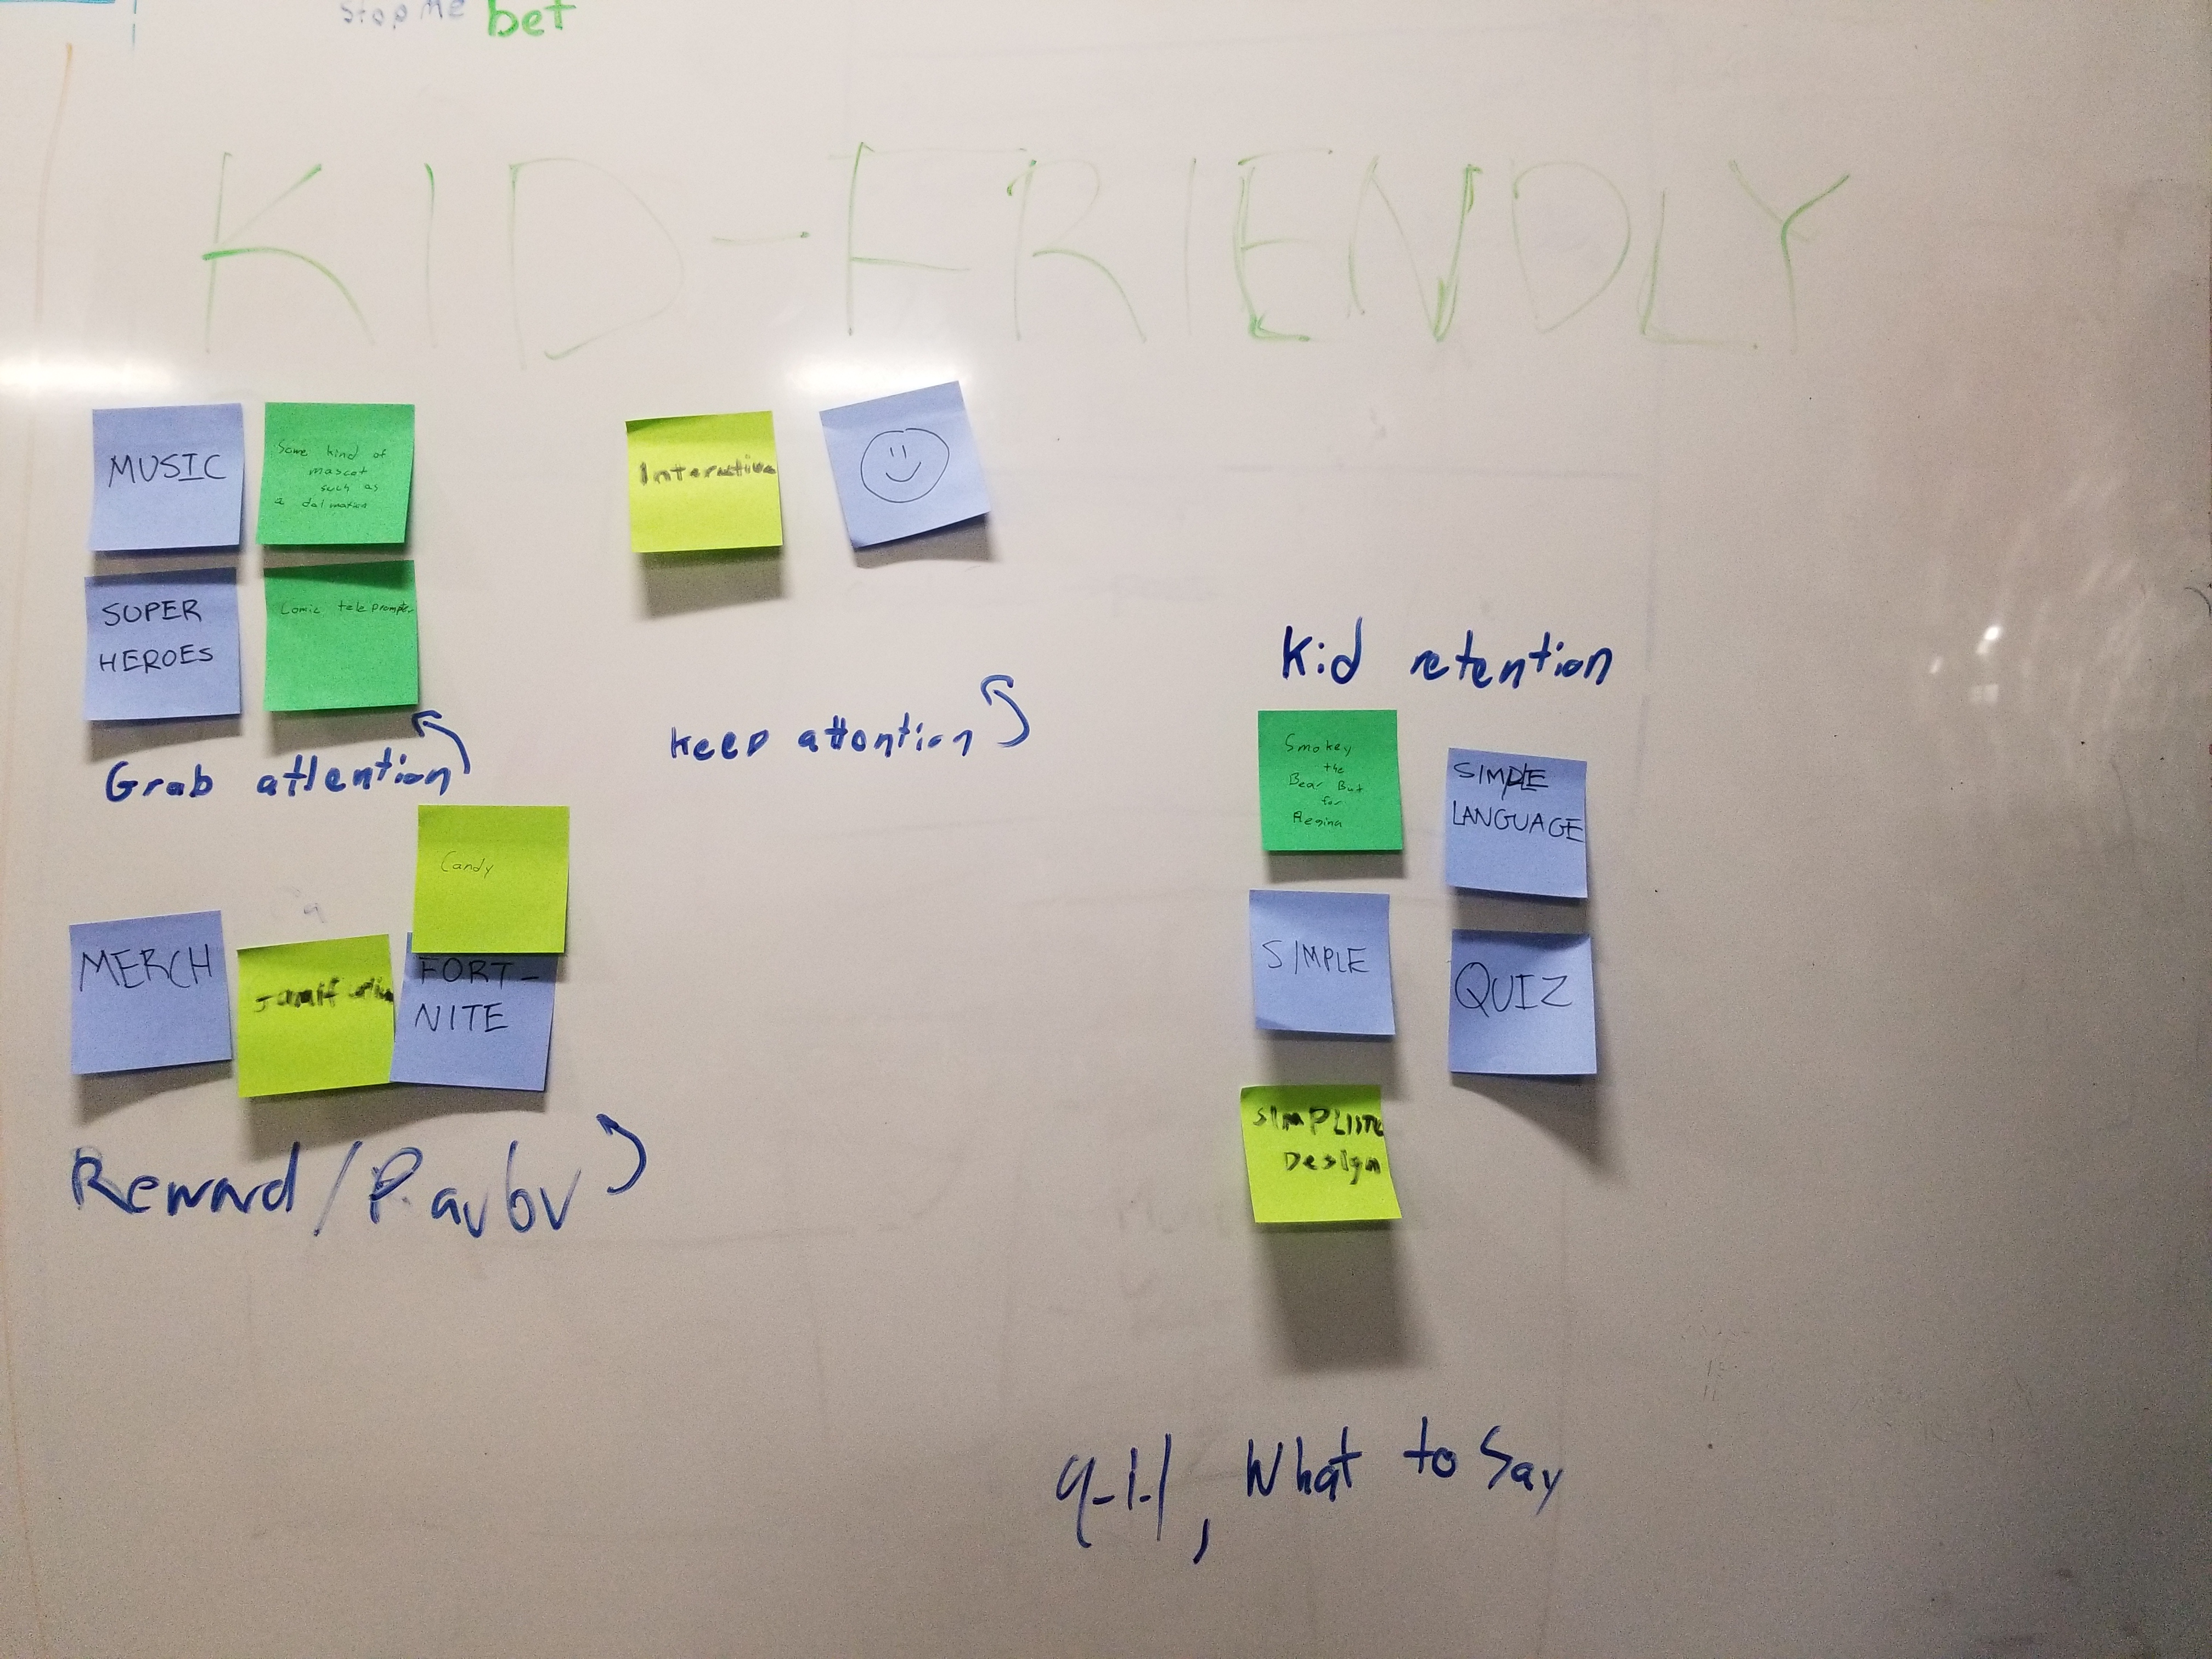 stop me bet
KID-FRIENDLY
MUSIC
Some kind of
mascot
such as
a dalmatian
SUPER
HEROES
Comic teleprompter
Grab attention
Interactive
Keep attention
Candy
MERCH
FORT-
NITE
Reward /
Kid retention
Smokey
the
Bear But
for
Regina
SIMPLE
LANGUAGE
SIMPLE
QUIZ
Design
9-1-1, What to Say